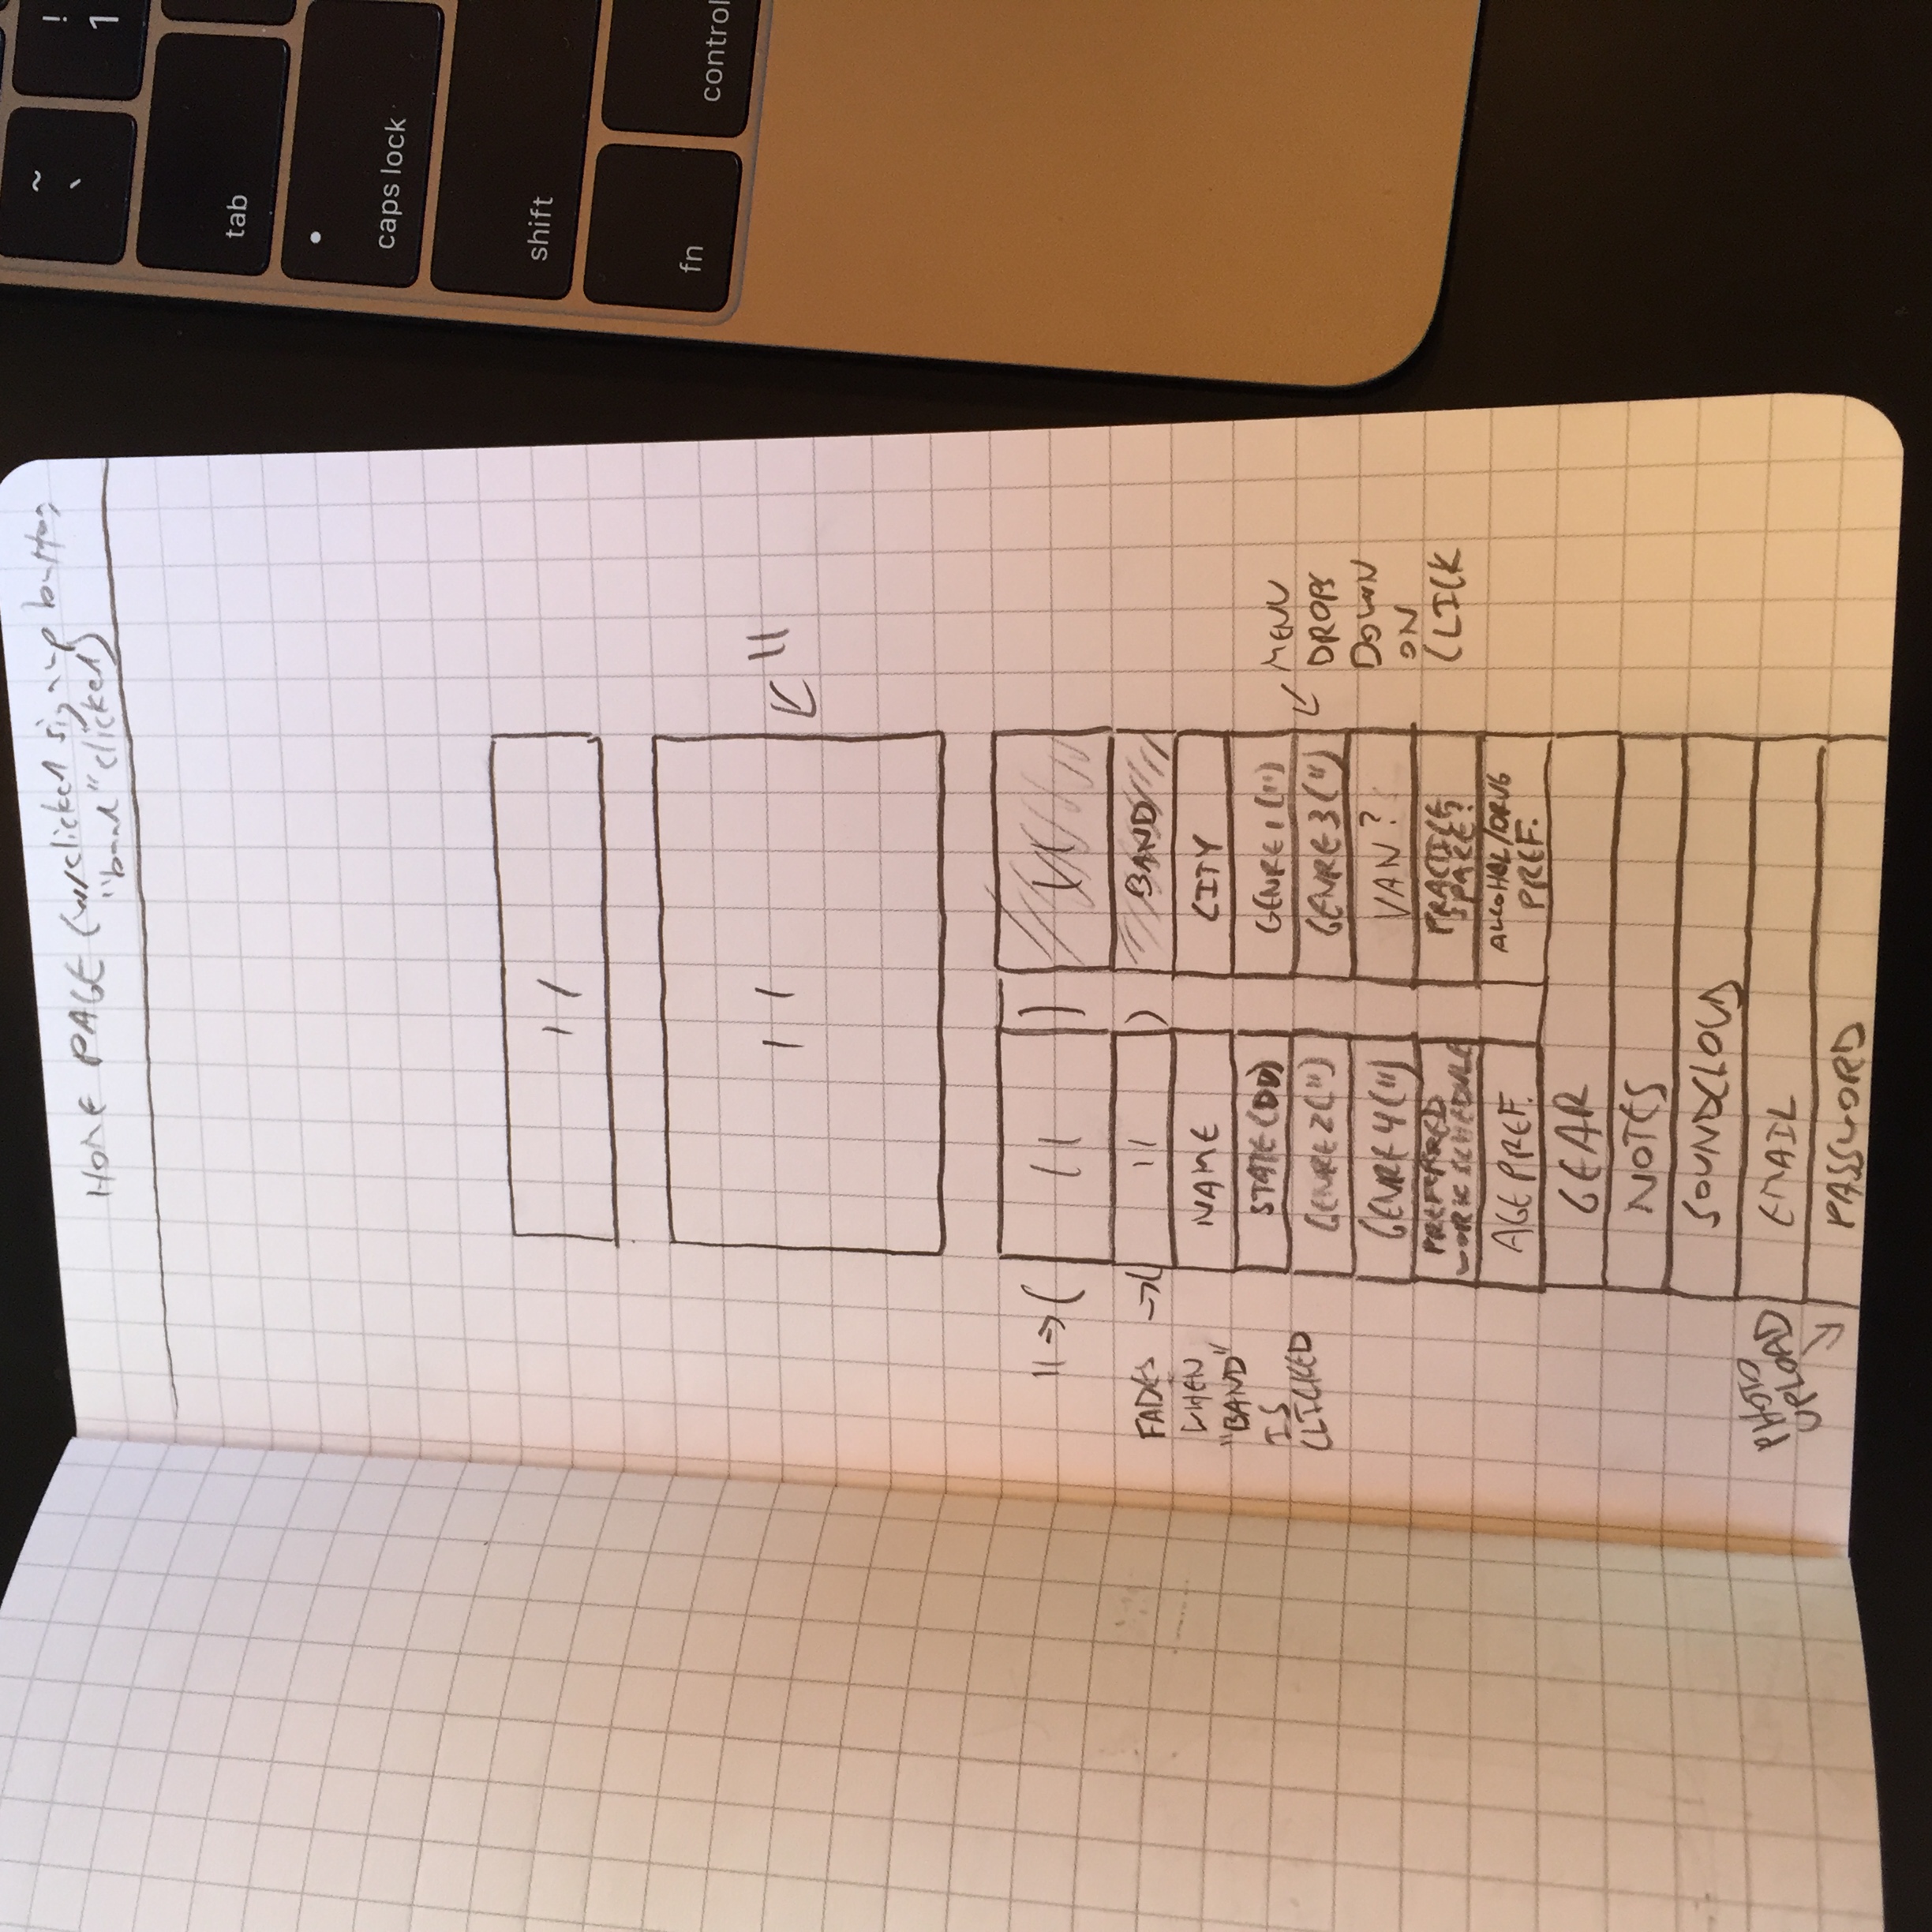 HOME PAGE (w/clicked signup button,
"band" clicked)
11
11
11
11 → ( 11 ) 11
FADES WHEN "BAND" IS CLICKED → ( 11 ) BAND
NAME CITY
STATE (DD) GENRE 1 (")
GENRE 2 (") GENRE 3 (")
MENU DROPS DOWN ON CLICK
GENRE 4 (") VAN?
PREFERRED
WORK SCHEDULE
PRACTICE
SPACE?
AGE PREF.
ALCOHOL/DRUG
PREF.
GEAR
NOTES
SOUNDCLOUD
EMAIL
PHOTO
UPLOAD
PASSWORD
~
`
!
1
tab
caps lock
shift
fn
control